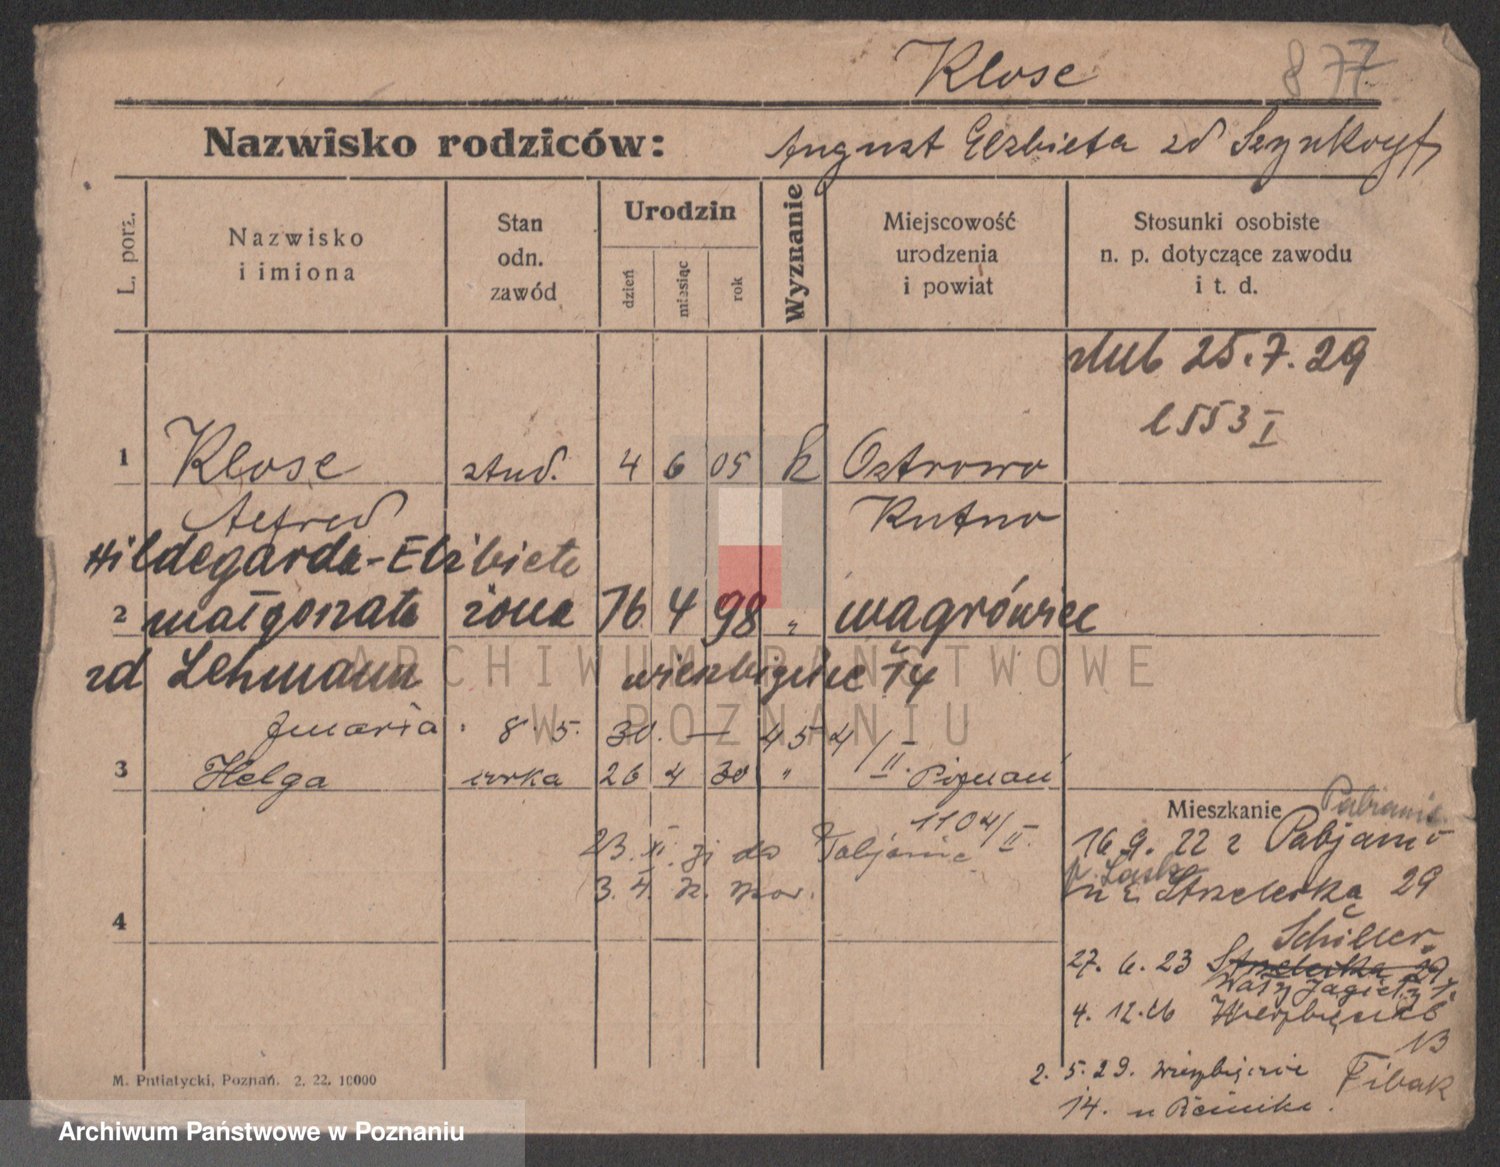 Klose 877
Nazwisko rodziców: August Elzbieta zd Szynkoryf
L. porz.
Nazwisko i imiona
Stan odn. zawód
Urodzin
dzień
miesiąc
rok
Wyznanie
Miejscowość urodzenia i powiat
Stosunki osobiste n. p. dotyczące zawodu i t. d.
slub 25.7.29
l 553 I
1 Klose stud. 4 6 05 k Ostrowo
Alfred Kutno
Hildegarda-Elżbieta
2 małgorzata żona 16 4 98 " wągrówiec
zd Lehmann wierzbięcice 14
Maria 8. 5. 30. — 45 4/II.
3 Helga córka 26 4 30 " Poznań
1104/II.
23. XI. do Pabjanic
3. II. z.
4
Mieszkanie Pabianic
16. 9. 22 z Pabjanic
p. Łask
Strzelecka 29
Schiller
27. 6. 23 Strzelecka 29
Wały Jagiełły
4. 12. 26 Wierzbięcice
13
2. 5. 29. Wierzbięcice Fibak
14. u
M. Putiatycki, Poznań. 2. 22. 10000
ARCHIWUM PAŃSTWOWE
W POZNANIU
Archiwum Państwowe w Poznaniu